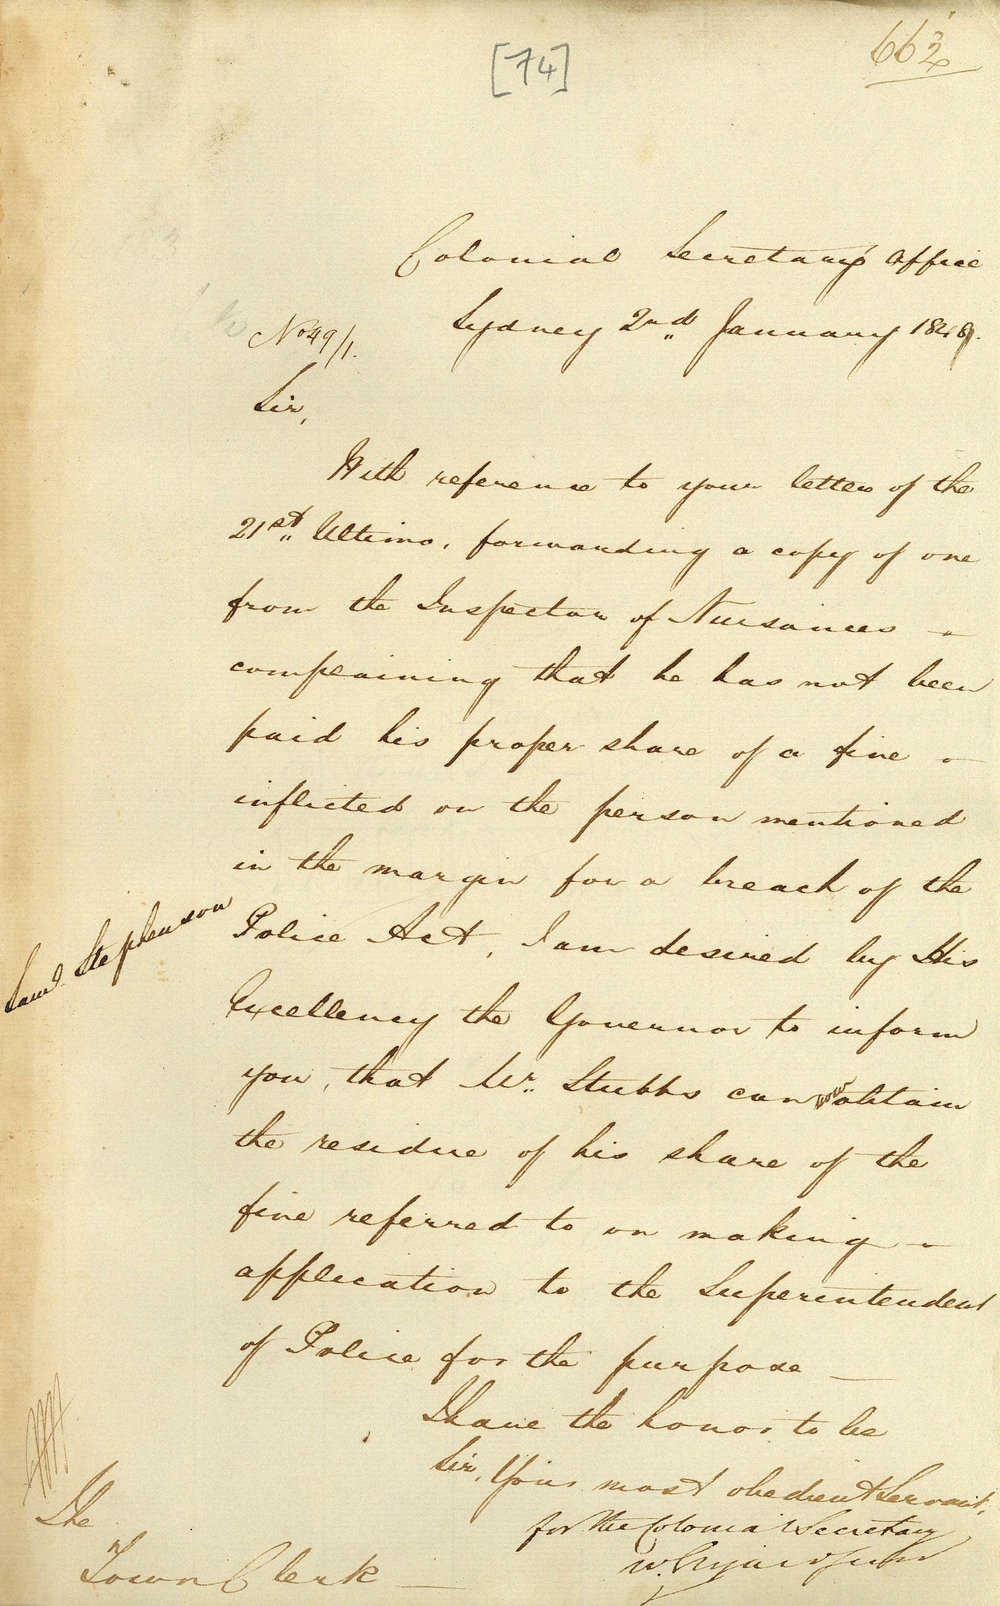 [74]
662
Colonial Secretary's Office
Sydney 2nd January 1849.
No 49/1.
Sir,
With reference to your letter of the
21st Ultimo, forwarding a copy of one
from the Inspector of Nuisances
complaining that he has not been
paid his proper share of a fine
inflicted on the person mentioned
in the margin for a breach of the
Saml. Stephenson
Police Act, I am desired by His
Excellency the Governor to inform
you, that Mr. Stubbs can obtain
the residue of his share of the
fine referred to on making
application to the Superintendent
of Police for the purpose —
I have the honor to be
Sir, Your most obedient Servant,
for the Colonial Secretary
W.
The
Town Clerk —